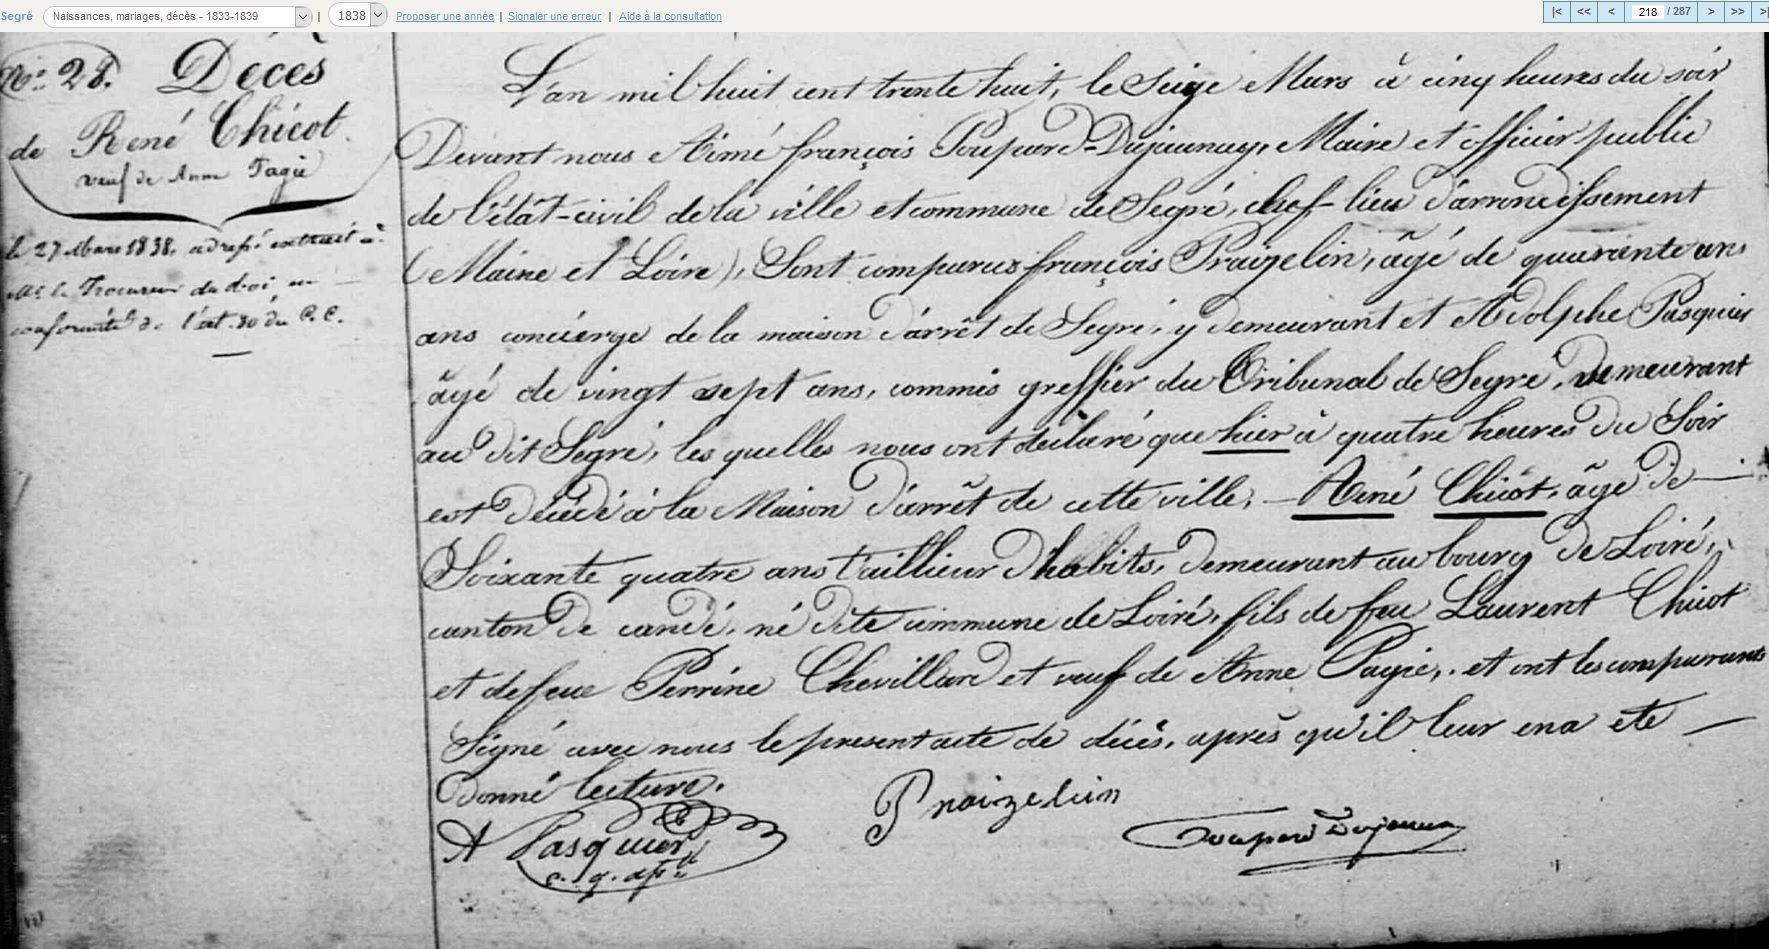 Segré Naissances, mariages, décès - 1833-1839 | 1838 Proposer une année | Signaler une erreur | Aide à la consultation |< << < 218 / 287 > >> >|
N.º 28. Décès
de René Chicot.
veuf de Anne Pagie
le 27 Mars 1838, adressé extrait à
Mr. le Procureur du Roi, en
conformité de l'art. 80 du C. C.
L'an mil huit cent trente huit, le Seize Mars à cinq heures du soir
Devant nous Aimé françois Poupard-Dujaunay, Maire et officier public
de l'état-civil de la ville et commune de Segré, chef-lieu d'arrondissement
(Maine et Loire), Sont comparus françois Praizelin, âgé de quarante ans
ans concierge de la maison d'arrêt de Segré, y demeurant et Adolphe Pasquier
âgé de vingt sept ans, commis greffier du Tribunal de Segré, demeurant
au dit Segré, les quelles nous ont déclaré que hier à quatre heures du Soir
est décédé à la Maison d'arrêt de cette ville, — René Chicot, âgé de —
Soixante quatre ans tailleur d'habits, demeurant au bourg de Loiré,
canton de candé, né dite commune de Loiré, fils de feu Laurent Chicot
et defeue Perrine Chevillard et veuf de Anne Pagie, et ont les comparants
Signé avec nous le present acte de décès, après qu'il leur en a ete —
donné lecture.
Praizelin
A Pasquier
Poupard Dujaunay